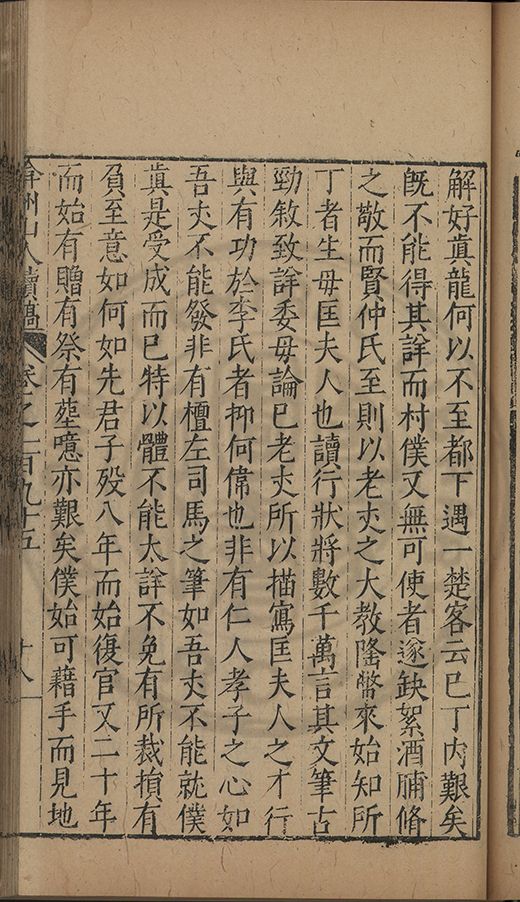 解好眞龍何以不至都下遇一楚客云已丁內艱矣
旣不能得其詳而村僕又無可使者遂缺絮酒脯脩
之敬而賢仲氏至則以老丈之大教隆幣來始知所
丁者生母匡夫人也讀行狀將數千萬言其文筆古
勁敘致詳委毋論已老丈所以描寫匡夫人之才行
與有功於李氏者抑何偉也非有仁人孝子之心如
吾丈不能發非有檀左司馬之筆如吾丈不能就僕
眞是受成而已特以體不能太詳不免有所裁損有
負至意如何如先君子歿八年而始復官又二十年
而始有贈有祭有塟噫亦艱矣僕始可藉手而見地
弇州山人續藁 卷之一百九十五 十八